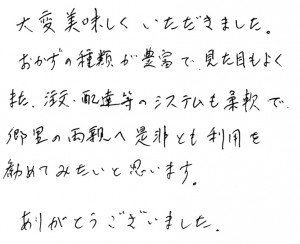 大変美味しくいただきました。
おかずの種類が豊富で、見た目もよく
また、注文・配達等のシステムも柔軟で
郷里の両親へ是非とも利用を
勧めてみたいと思います。
ありがとうございました。